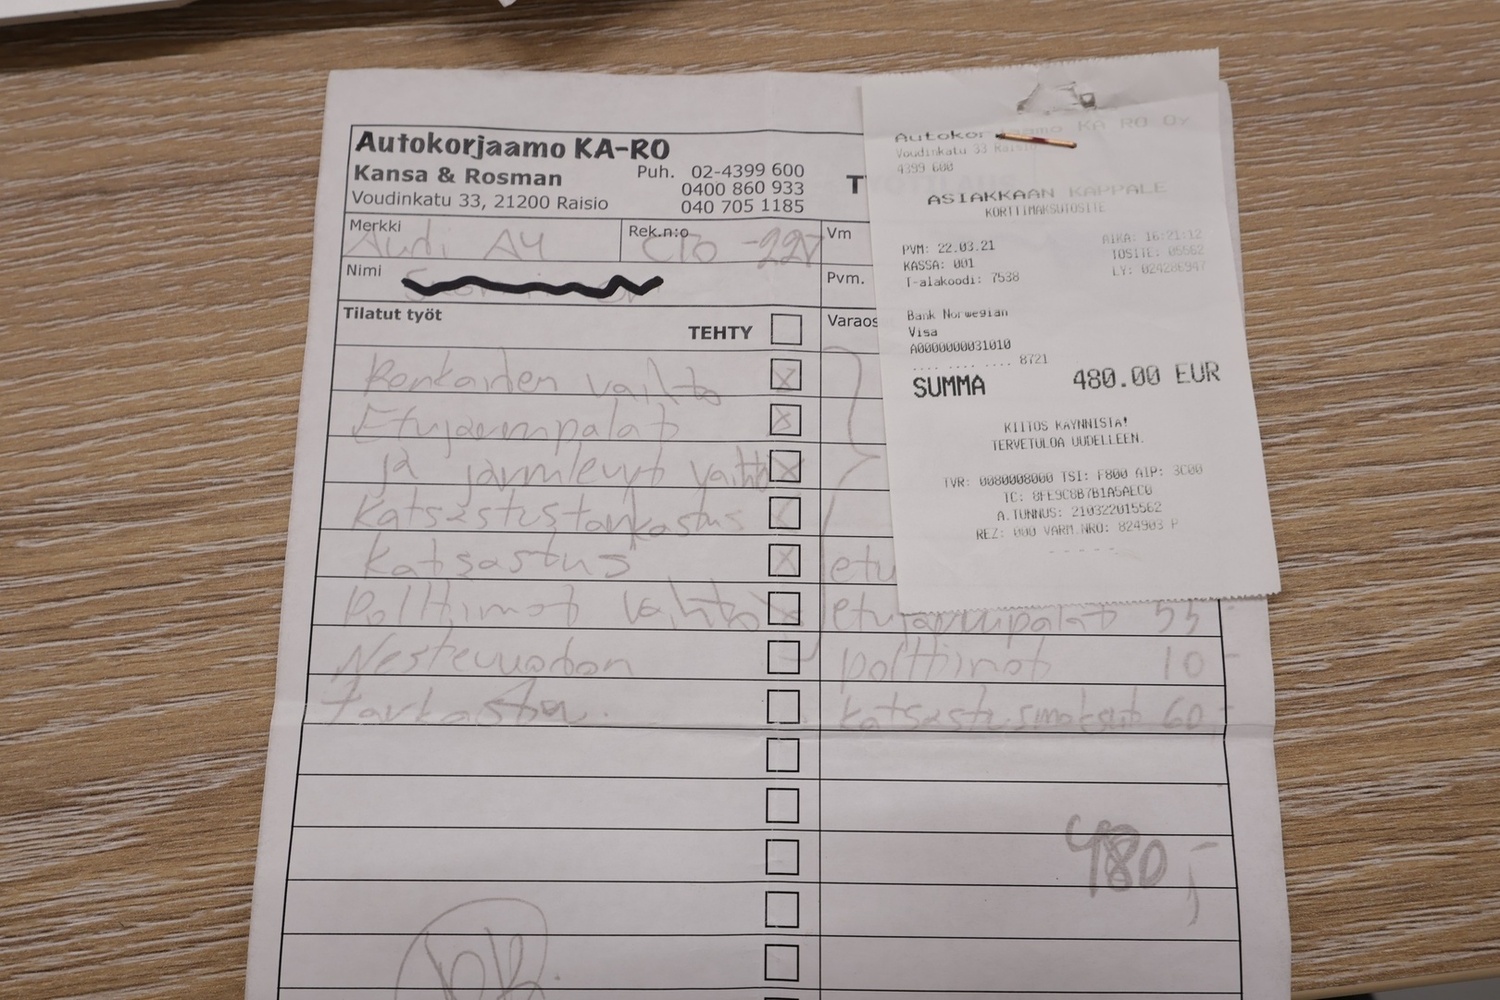 Autokorjaamo KA-RO
Kansa & Rosman
Puh. 02-4399 600
0400 860 933
Voudinkatu 33, 21200 Raisio
040 705 1185
Merkki
Audi A4
Rek.n:o
CTO -227
Vm
Nimi
Pvm.
Tilatut työt
TEHTY
Varaos
Renkaiden vaihto
Etujarrupalat
ja jarrulevyt vaihto
Katsastustarkastus
Katsastus
etu
Polttimot vaihto
etujarrupalat 55,-
Nestevuodon
polttimot 10,-
tarkastu
katsastusmaksut 60,-
480,-
OK
Autokorjaamo KA RO Oy
Voudinkatu 33 Raisio
4399 600
ASIAKKAAN KAPPALE
KORTTIMAKSUTOSITE
PVM: 22.03.21 AIKA: 16:21:12
KASSA: 001 TOSITE: 05562
T-alakoodi: 7538 LY: 02428694
Bank Norwegian
Visa
A0000000031010
.... .... .... 8721
SUMMA 480.00 EUR
KIITOS KÄYNNISTÄ!
TERVETULOA UUDELLEEN.
TVR: 0080008000 TSI: F800 AIP: 3C00
TC: 8FE9C8B7B1A5AEC0
A.TUNNUS: 210322015562
REZ: 000 VARM.NRO: 824903 P
- - - - -